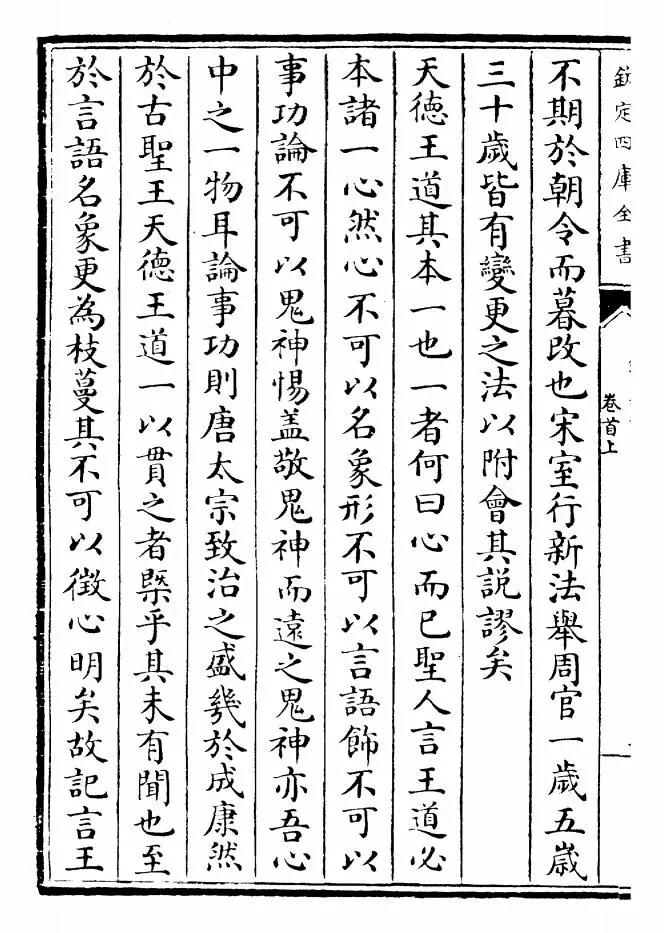 欽定四庫全書
卷首上
不期於朝令而暮改也宋室行新法舉周官一歲五歲
三十歲皆有變更之法以附會其説謬矣
天德王道其本一也一者何曰心而已聖人言王道必
本諸一心然心不可以名象形不可以言語飾不可以
事功論不可以鬼神惕盖敬鬼神而遠之鬼神亦吾心
中之一物耳論事功則唐太宗致治之盛幾於成康然
於古聖王天德王道一以貫之者槩乎其未有聞也至
於言語名象更為枝蔓其不可以徵心明矣故記言王